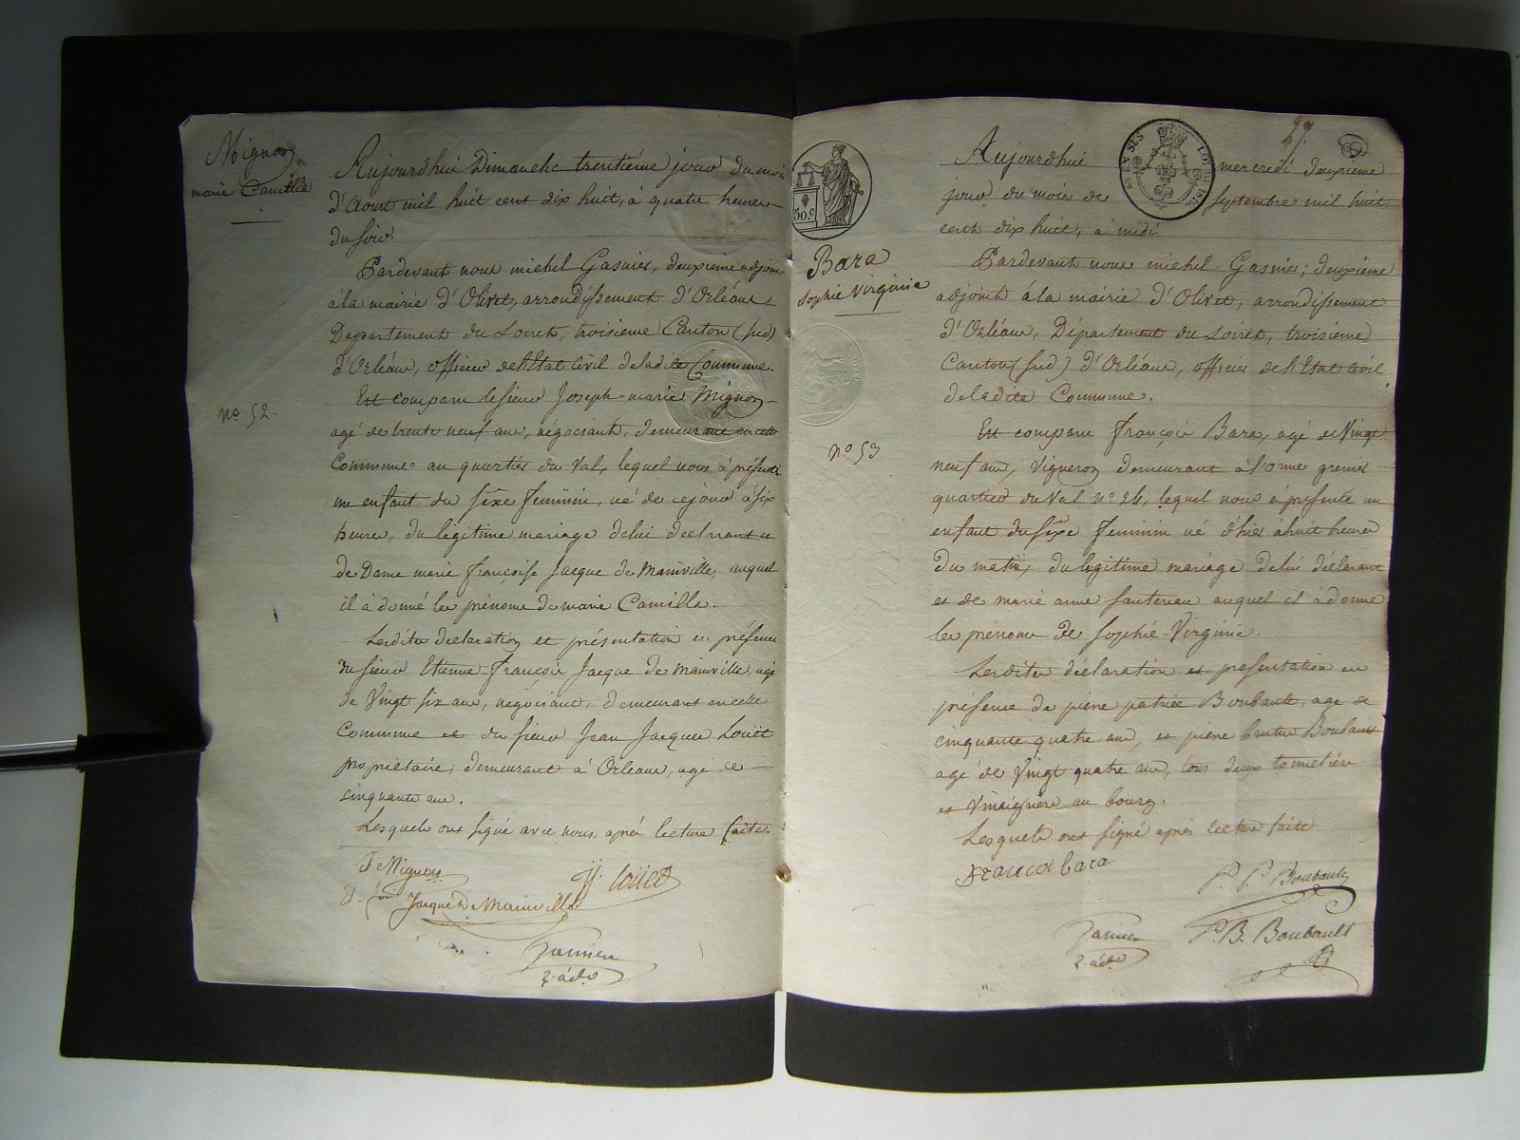 Mignon
marie Camille
Aujourdhui Dimanche trentième jour du mois
d'Aout mil huit cent dix huit, à quatre heures
du soir
Pardevant nous michel Gasnier, deuxieme adjoint
à la mairie d'Olivet, arrondissement d'Orléans
Departement du Loiret, troisieme Canton (sud)
d'Orléans, officier de l'Etat Civil de ladite Commune.
Est comparu le sieur Joseph marie Mignon
agé de trente neuf ans, négociant, demeurant en cette
Commune au quartier du Val, lequel nous à présenté
un enfant du sexe feminin, né de ce jour à six
heures, du légitime mariage de lui déclarant et
de Dame marie françoise Jacque de Mainville, auquel
il à donné les prénoms de marie Camille.
Lesdites declaration et présentation en présence
du sieur Etienne françois Jacque de Mainville, agé
de Vingt six ans, négociant, demeurant en cette
Commune et du sieur Jean Jacques Louët
propriétaire, demeurant à Orléans, agé de
cinquante ans.
Lesquels ont signé avec nous, après lecture faite
no 52
J. Mignon
JJ. Louët
Jacque de Mainville
Gasnier
2. adt
27
30c
Bara
sophie virginie
no 53
Aujourdhui mercredi deuxieme
jour du mois de septembre mil huit
cent dix huit, à midi
Pardevant nous michel Gasnier, deuxieme
adjoint à la mairie d'Olivet, arrondissement
d'Orléans, Département du Loiret, troisieme
Canton (sud) d'Orléans, officier de l'Etat civil
de ladite Commune.
Est comparu françois Bara, agé de Vingt
neuf ans, Vigneron demeurant à l'orme grenier
quartier du Val no 24, lequel nous à présenté un
enfant du sexe feminin né d'hier à huit heures
du matin, du légitime mariage de lui déclarant
et de marie anne fautereau auquel il à donné
les prénoms de sophie Virginie.
Lesdites déclaration et presentation en
présence de pierre patrice Boubault, agé de
cinquante quatre ans, et pierre brutus Boubault
agé de Vingt quatre ans, tous deux tonneliers
et Vinaigriers au bourg.
Lesquels ont signé après lecture faite
francois bara
P. P. Boubault
P. B. Boubault
Gasnier
2. adt